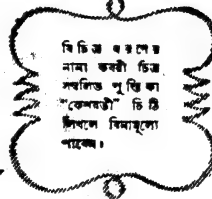 বিচিত্র ধরণের
নানা কবরী চিত্র
সম্বলিত পুস্তিকা
"কেশবতী" চিঠি
লিখলে বিনামূল্যে
পাবেন।